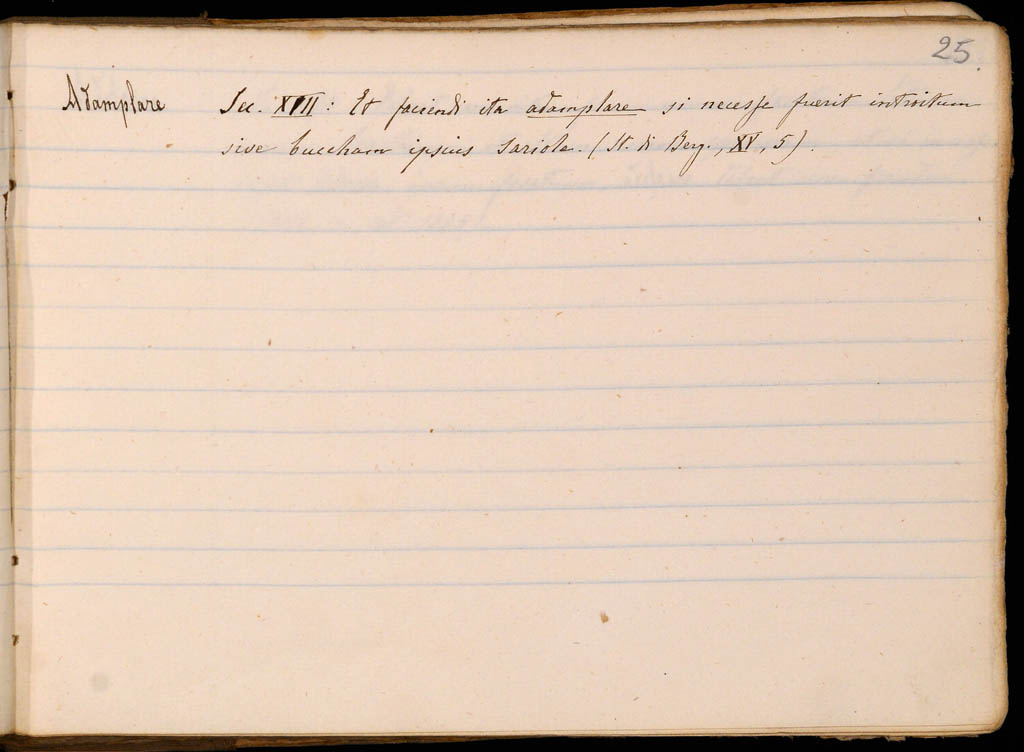 25.
Adamplare Sec. XVII: Et faciendi ita adamplare si necesse fuerit introitum
sive buccham ipsius Sariole. (St. di Berg., XV, 5).